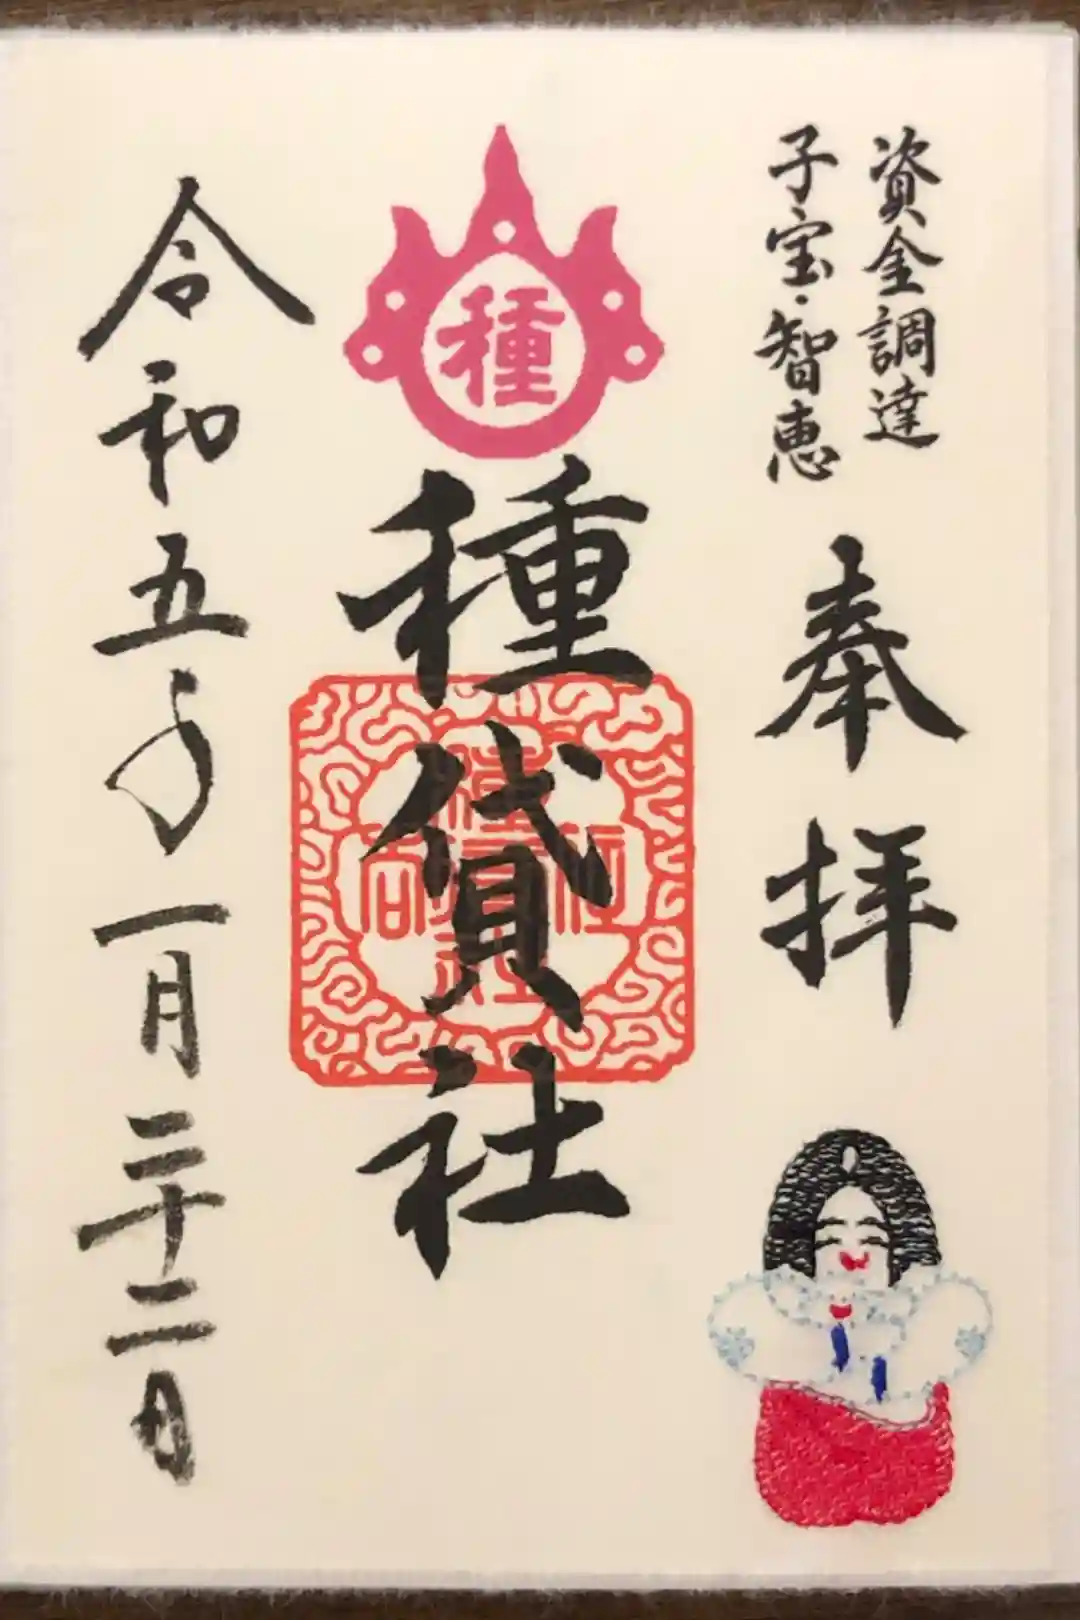 資金調達
子宝・智恵
奉拝
種
種貸社
令和五年一月二十二日